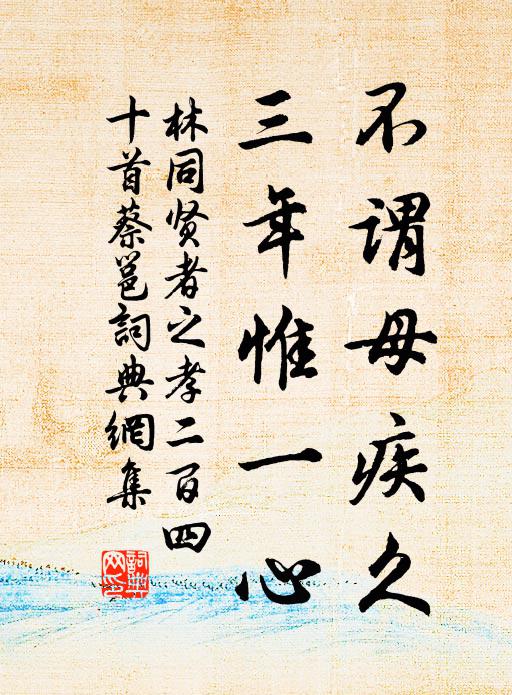 不谓母疾久
三年惟一心
林同贤者之孝二百四
十首蔡邕詞典網集
詞典網印